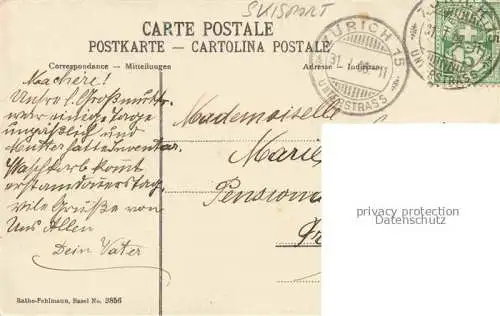 SKISPORT
CARTE POSTALE
POSTKARTE - CARTOLINA POSTALE
Correspondance — Mitteilungen
Adresse — Indirizzo
ZÜRICH 15
UNTERSTRASS
UNTERSTRASS
5
Machere!
Unsre l. Großmutter
war einige Tage
unpässlich und
Mutter hatte Inventar.
Waschkorb kommt
erst am Donnerstag.
viele Grüße von
Uns Allen
Dein Vater
Mademoiselle
Marie
Pension
privacy protection
Datenschutz
Rathe-Fehlmann, Basel No. 3856